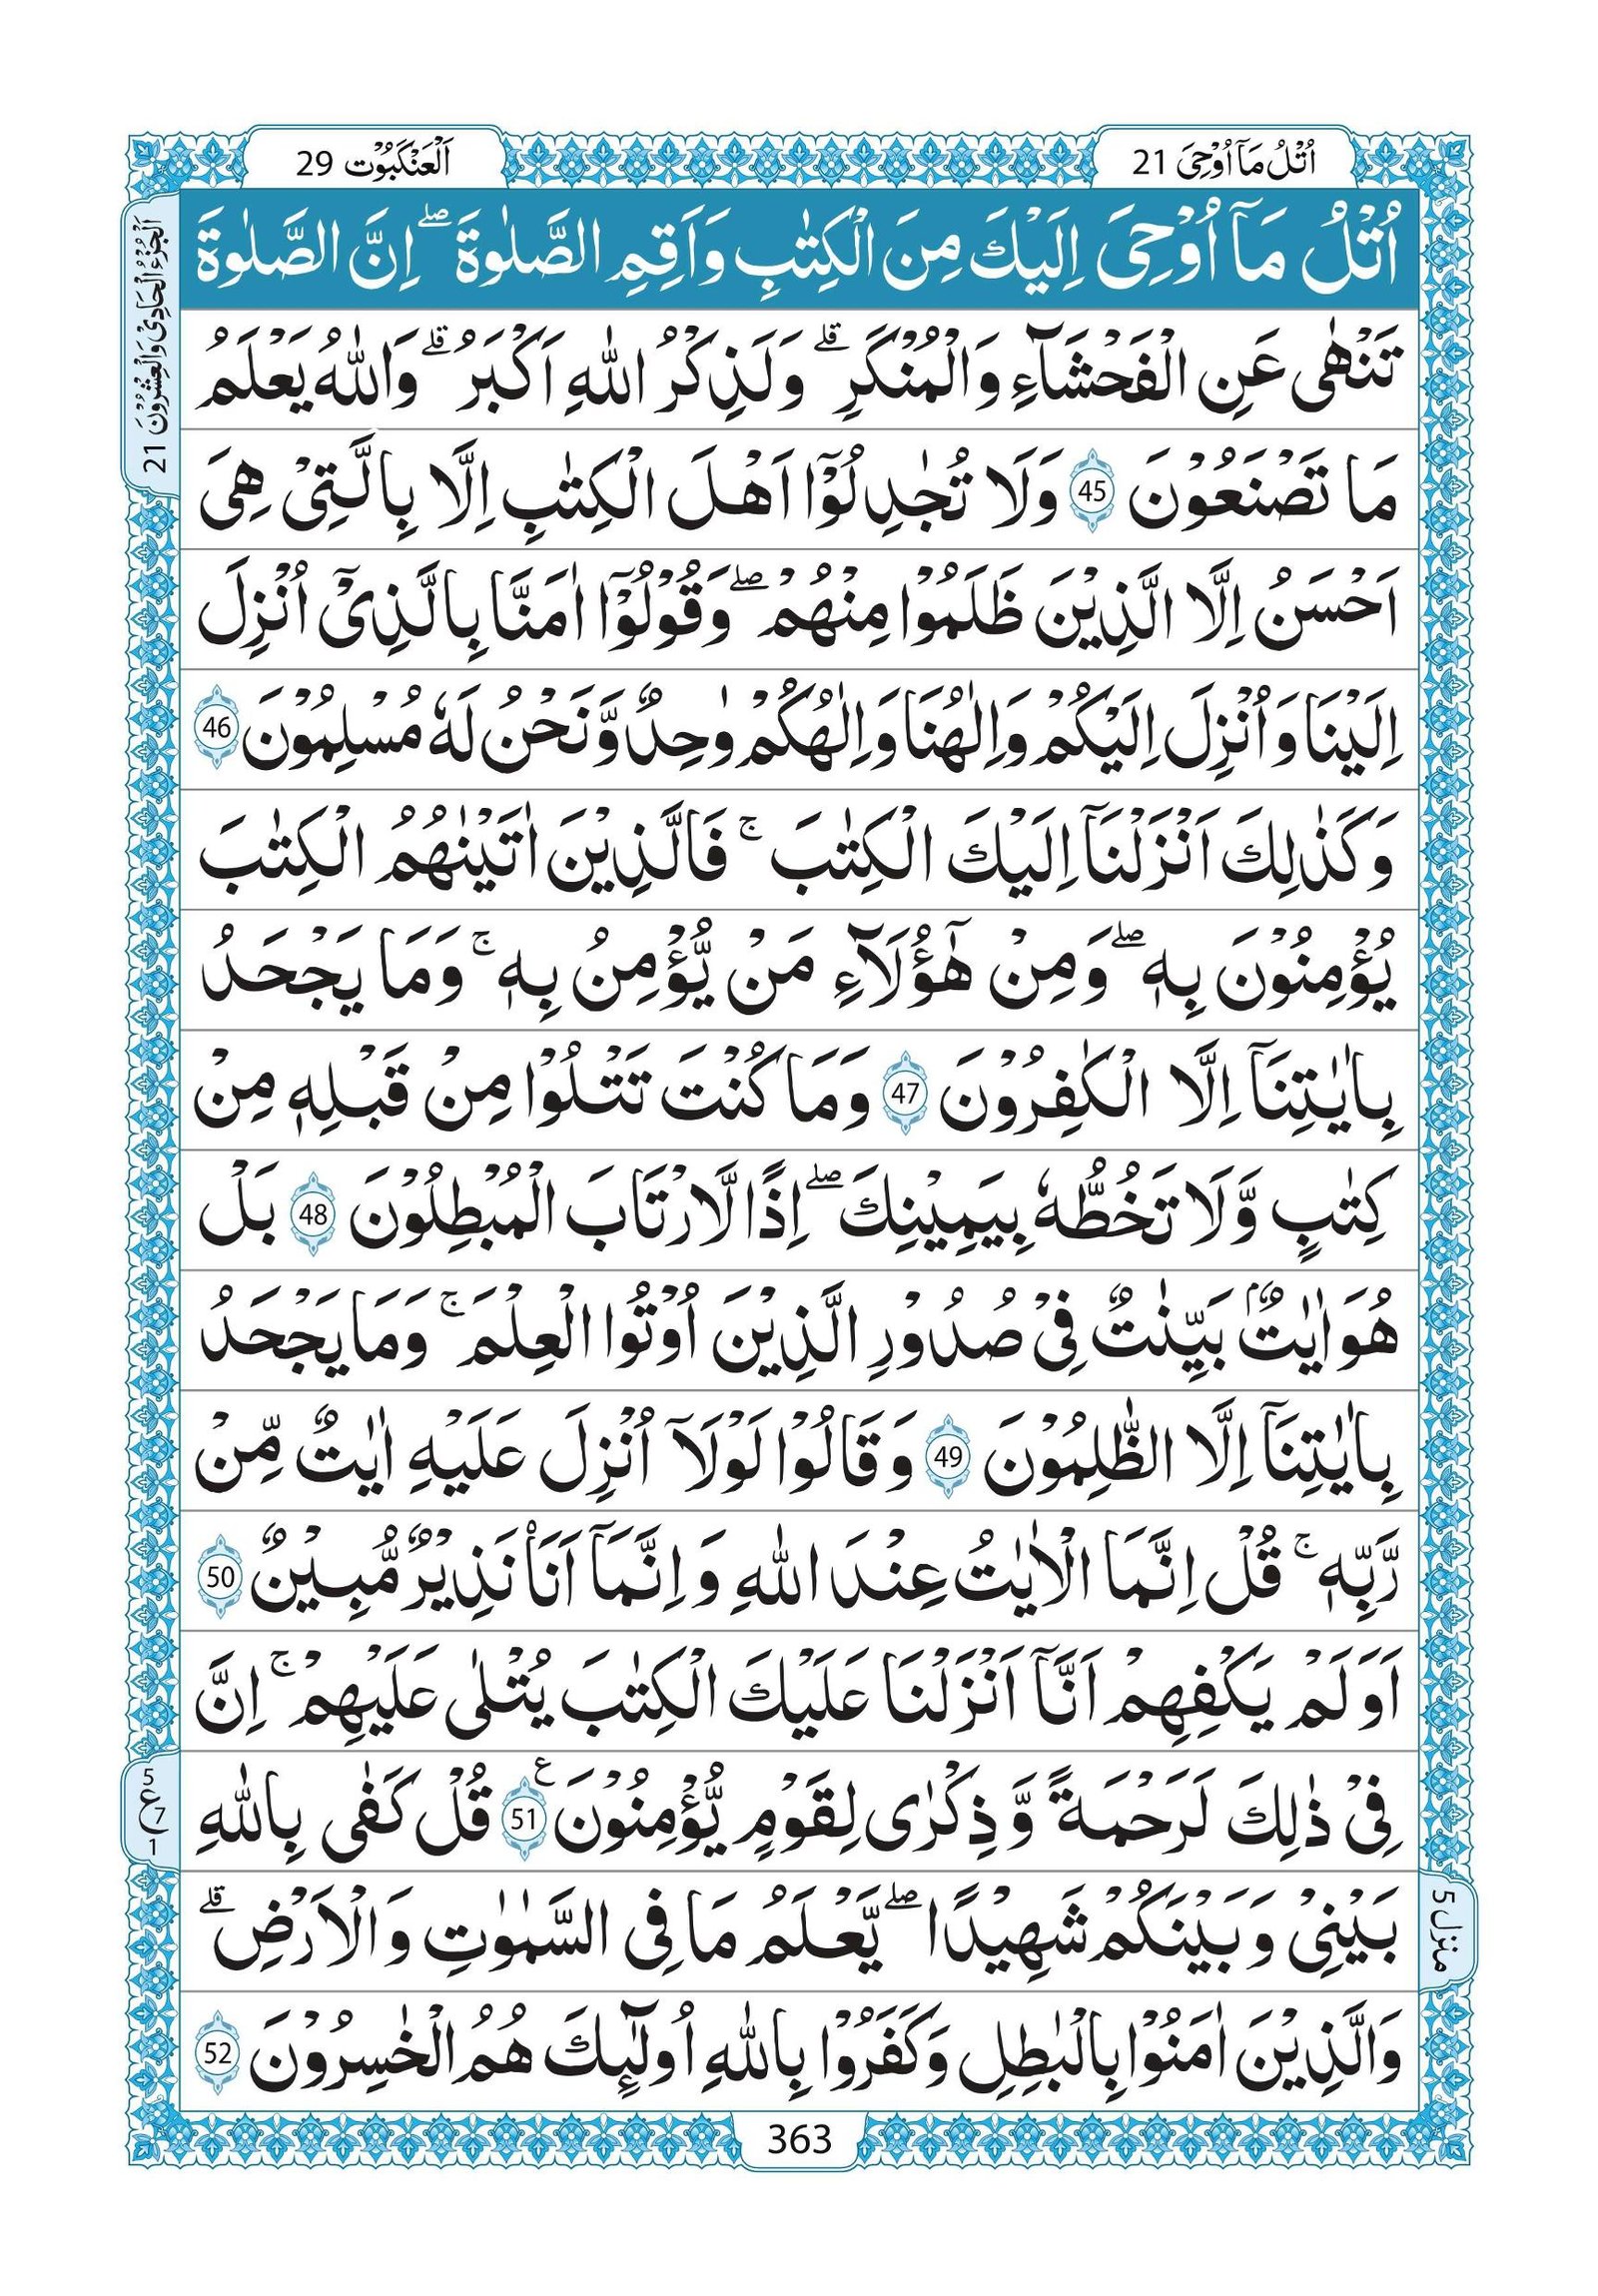 اُتْلُ مَآ اُوْحِیَ 21
اَلْعَنْكَبُوْت 29
اُتْلُ مَآ اُوْحِیَ اِلَیْكَ مِنَ الْكِتٰبِ وَاَقِمِ الصَّلٰوةَ ؕۖ اِنَّ الصَّلٰوةَ
تَنْهٰى عَنِ الْفَحْشَآءِ وَالْمُنْكَرِ ۗ وَلَذِكْرُ اللّٰهِ اَكْبَرُ ۗ وَاللّٰهُ یَعْلَمُ
مَا تَصْنَعُوْنَ 45 وَلَا تُجٰدِلُوْۤا اَهْلَ الْكِتٰبِ اِلَّا بِالَّتِیْ هِیَ
اَحْسَنُ اِلَّا الَّذِیْنَ ظَلَمُوْا مِنْهُمْ ۖ وَقُوْلُوْۤا اٰمَنَّا بِالَّذِیْۤ اُنْزِلَ
اِلَیْنَا وَاُنْزِلَ اِلَیْكُمْ وَاِلٰهُنَا وَاِلٰهُكُمْ وٰحِدٌ وَّنَحْنُ لَهٗ مُسْلِمُوْنَ 46
وَكَذٰلِكَ اَنْزَلْنَاۤ اِلَیْكَ الْكِتٰبَ ۚ فَالَّذِیْنَ اٰتَیْنٰهُمُ الْكِتٰبَ
یُؤْمِنُوْنَ بِهٖ ۖ وَمِنْ هٰۤؤُلَآءِ مَنْ یُّؤْمِنُ بِهٖ ۚ وَمَا یَجْحَدُ
بِاٰیٰتِنَاۤ اِلَّا الْكٰفِرُوْنَ 47 وَمَا كُنْتَ تَتْلُوْا مِنْ قَبْلِهٖ مِنْ
كِتٰبٍ وَّلَا تَخُطُّهٗ بِیَمِیْنِكَ ۖ اِذًا لَّارْتَابَ الْمُبْطِلُوْنَ 48 بَلْ
هُوَ اٰیٰتٌۢ بَیِّنٰتٌ فِیْ صُدُوْرِ الَّذِیْنَ اُوْتُوا الْعِلْمَ ۚ وَمَا یَجْحَدُ
بِاٰیٰتِنَاۤ اِلَّا الظّٰلِمُوْنَ 49 وَقَالُوْا لَوْلَاۤ اُنْزِلَ عَلَیْهِ اٰیٰتٌ مِّنْ
رَّبِّهٖ ۚ قُلْ اِنَّمَا الْاٰیٰتُ عِنْدَ اللّٰهِ وَاِنَّمَاۤ اَنَا۠ نَذِیْرٌ مُّبِیْنٌ 50
اَوَلَمْ یَكْفِهِمْ اَنَّاۤ اَنْزَلْنَا عَلَیْكَ الْكِتٰبَ یُتْلٰى عَلَیْهِمْ ۚ اِنَّ
فِیْ ذٰلِكَ لَرَحْمَةً وَّذِكْرٰى لِقَوْمٍ یُّؤْمِنُوْنَ 51 ع قُلْ كَفٰى بِاللّٰهِ
بَیْنِیْ وَبَیْنَكُمْ شَهِیْدًا ۖ یَّعْلَمُ مَا فِی السَّمٰوٰتِ وَالْاَرْضِ ۗ
وَالَّذِیْنَ اٰمَنُوْا بِالْبٰطِلِ وَكَفَرُوْا بِاللّٰهِ اُولٰٓىِٕكَ هُمُ الْخٰسِرُوْنَ 52
اَلْجُزْءُ الْحَادِیْ وَالْعِشْرُوْنَ 21
5
ع 7
1
منزل 5
363